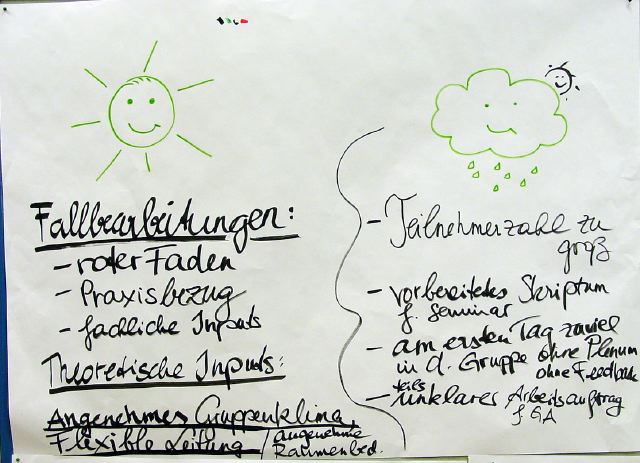 Fallbearbeitungen:
- roter Faden
- Praxisbezug
- fachliche Inputs
Theoretische Inputs:
Angenehmes Gruppenklima,
Flexible Leitung / angenehme
Raumenbed.
- Teilnehmerzahl zu
groß
- vorbereitetes Skriptum
f. Seminar
- am ersten Tag zuviel
in d. Gruppe ohne Plenum
ohne Feedback
- teils unklarer Arbeitsauftrag
f GA